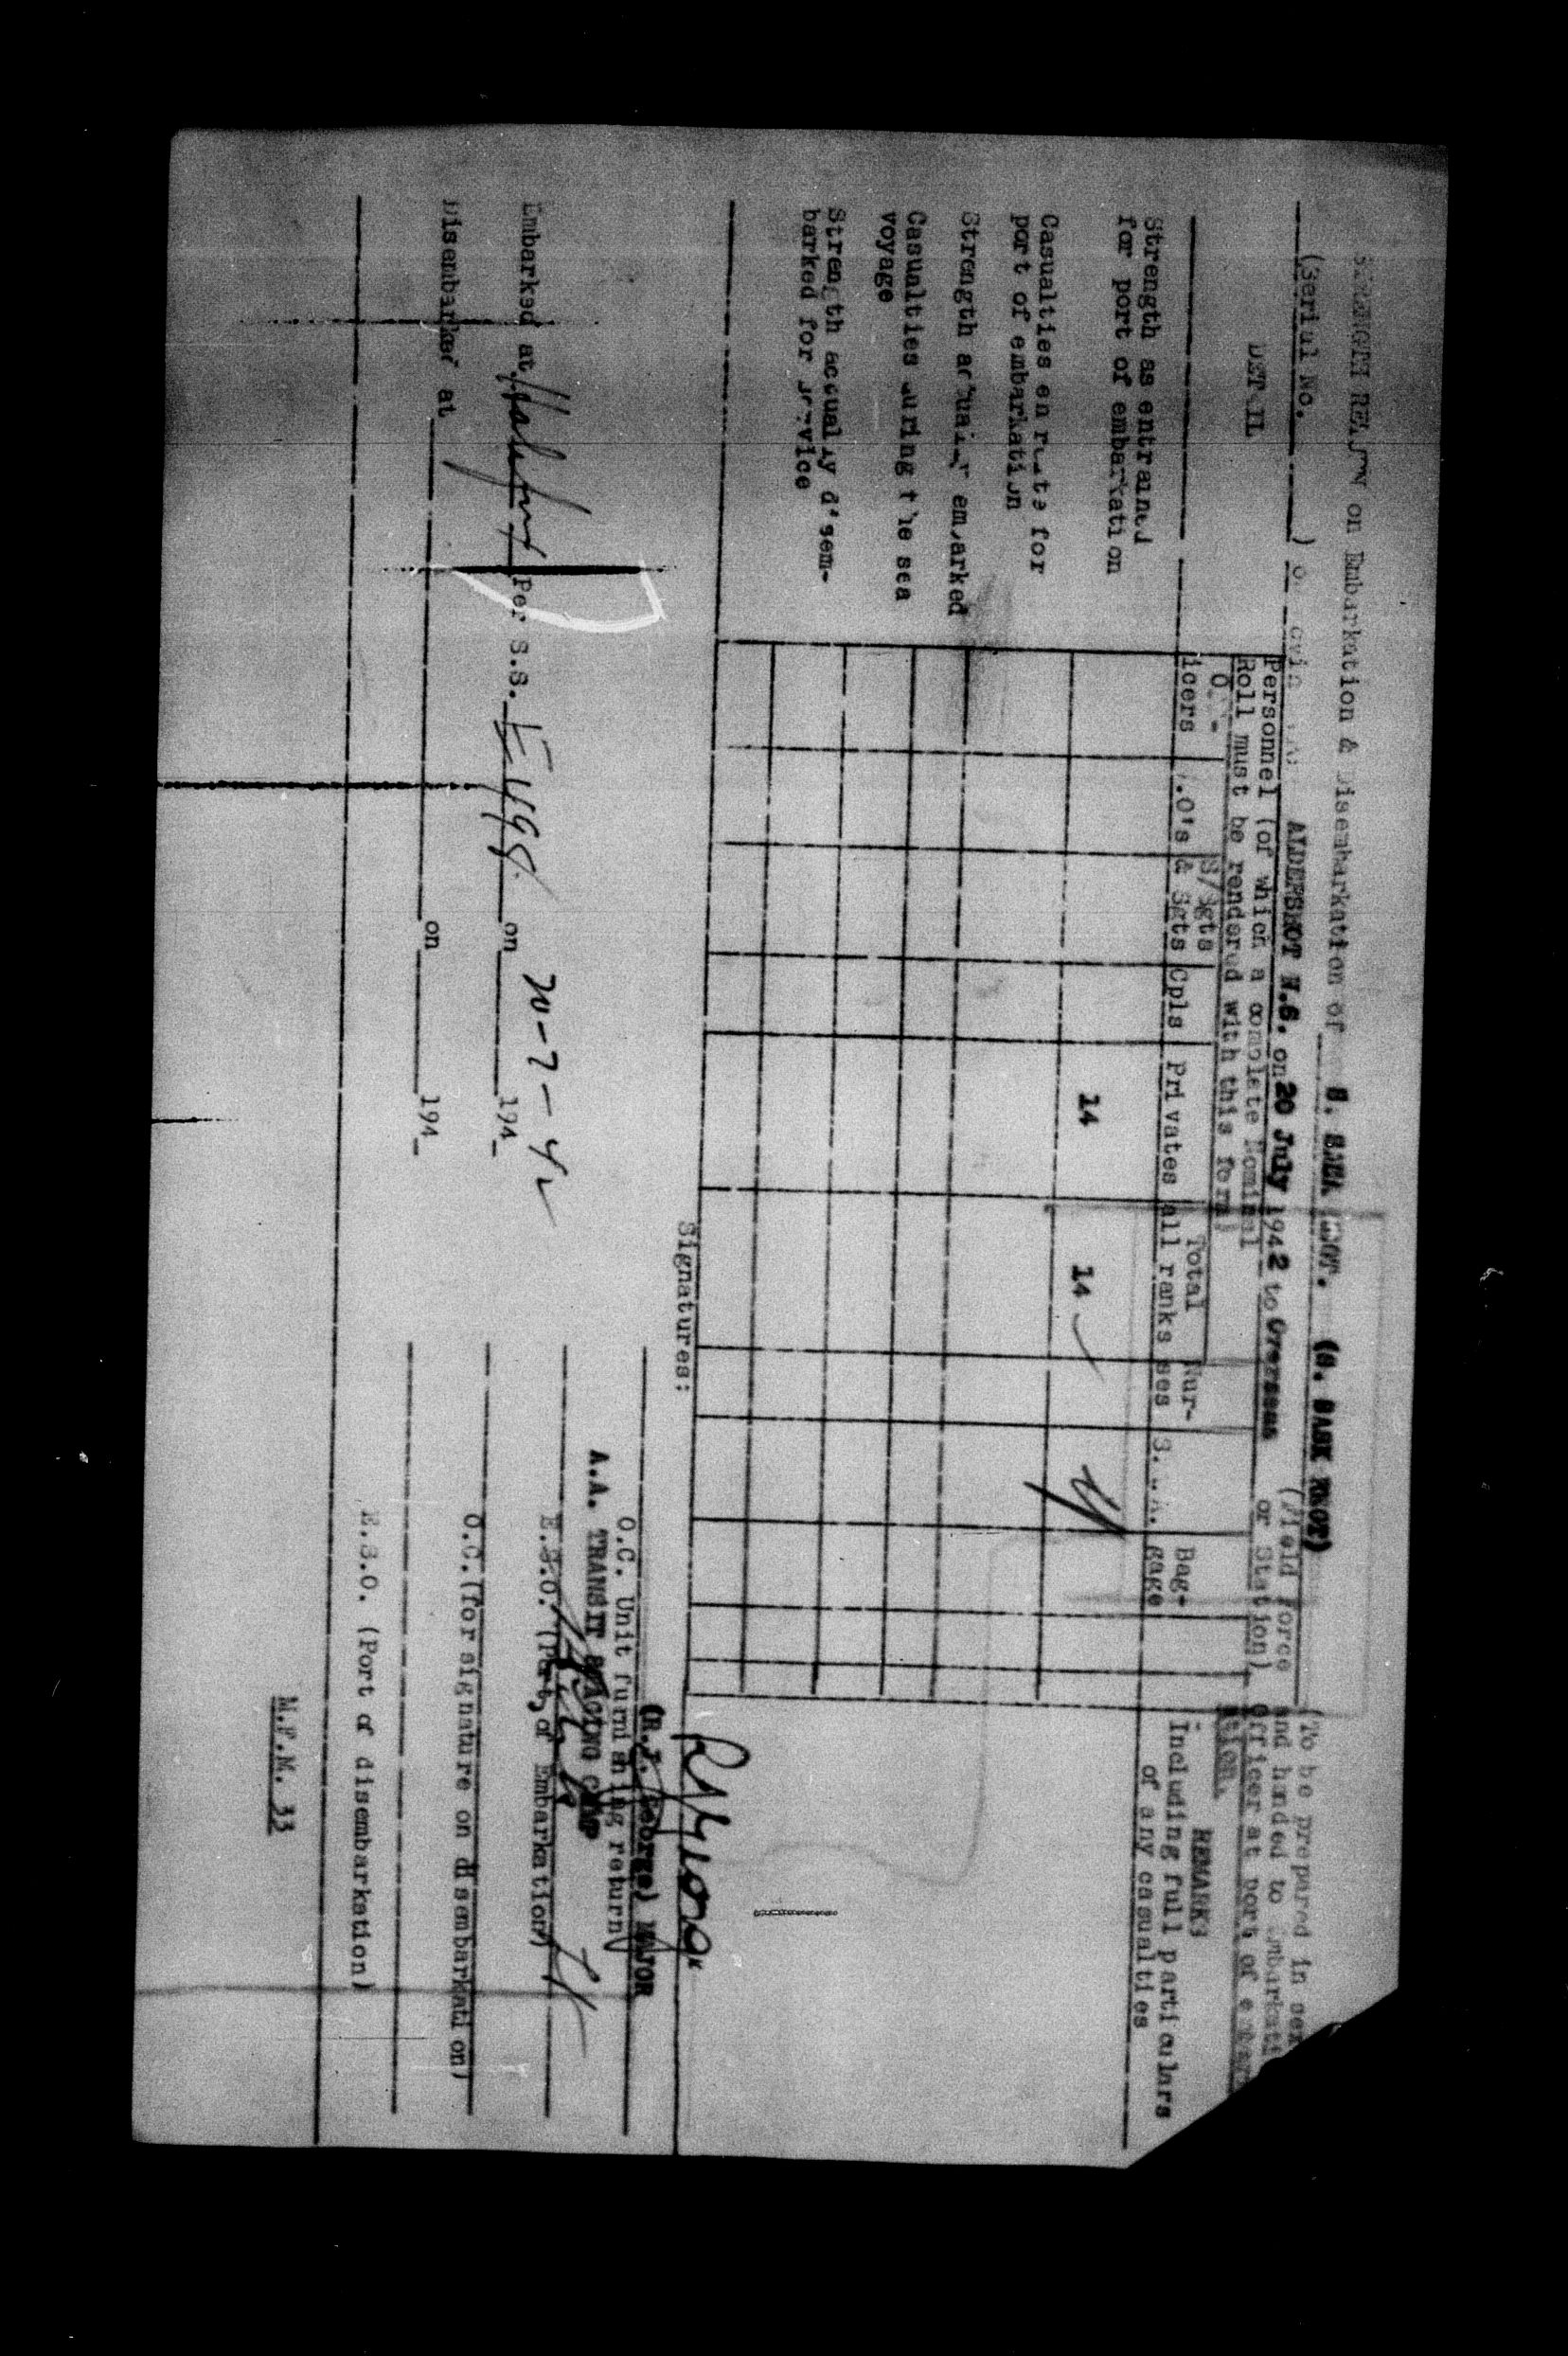 on Embarkation & Disembarkation of S. SASK REGT. (S. SASK REGT)
(Serial No. ) ALDERSHOT N.S. on 20 July 1942 to Overseas (Field Force or Station)
Personnel (of which a complete Nominal
Roll must be rendered with this form)
(To be prepared in
and handed to
Officer at port of
DETAIL
icers
S/Sgts
& Sgts
Cpls
Privates
Total
all ranks
Nur-
ses
Bag-
gage
REMARKS
Including full particulars
of any casualties
Strength as entrained
for port of embarkation
14
14
Casualties en route for
port of embarkation
Strength actually embarked
Casualties during the sea
voyage
Strength actually disem-
barked for service
Signatures:
(R.L. George) MAJOR
O.C. Unit furnishing return
A.A. TRANSIT CAMP
Embarked at Halifax Per S.S. E 498 on 20-7-42 194_
E.S.O. (Port of Embarkation)
Disembarked at on 194_
O.C. (for signature on disembarkation)
E.S.O. (Port of disembarkation)
M.F.M. 33